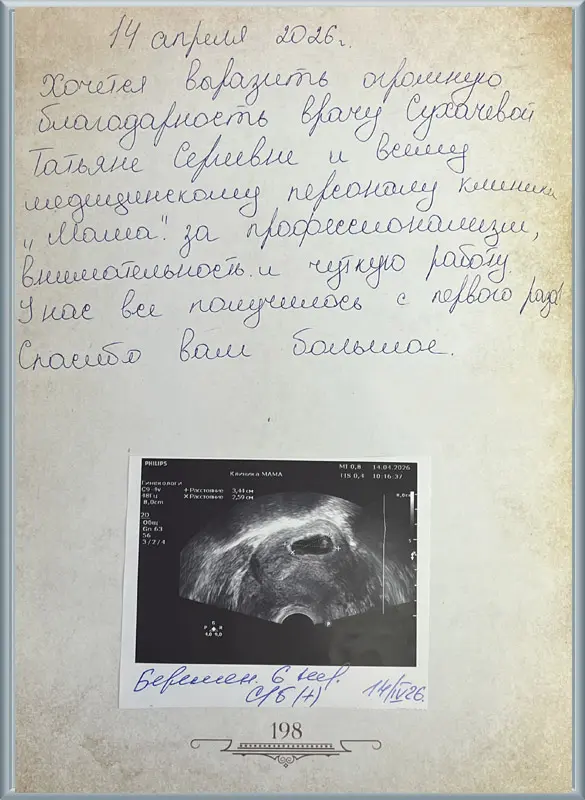 14 апреля 2026г.
Хочется выразить огромную
благодарность врачу Сухачевой
Татьяне Сергиевне и всему
медицинскому персоналу клиники
"Мама" за профессионализм,
внимательность и чуткую работу.
У нас все получилось с первого раза!
Спасибо вам большое.
PHILIPS
Клиника МАМА
MI 0,8 14.04.2026
TIS 0,4 10:16:37
Гинекологи
C9-4v
48Гц
8,0cm
+Расстояние 3,44 см
XРасстояние 2,59 см
2D
Общ
Gn 63
56
3/2/4
Беремен. 6 нед.
С/б (+) 14/IV26.
198